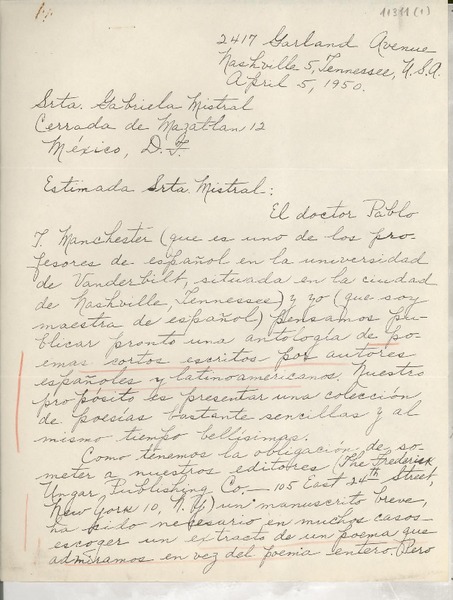 11311 (1)
2417 Garland Avenue
Nashville 5, Tennessee, U.S.A.
April 5, 1950.
Srta. Gabriela Mistral
Cerrada de Mazatlan 12
México, D.F.
Estimada Srta. Mistral:
El doctor Pablo
T. Manchester (que es uno de los pro-
fesores de español en la universidad
de Vanderbilt, situada en la ciudad
de Nashville, Tennessee) y yo (que soy
maestra de español) pensamos pu-
blicar pronto una antología de po-
emas cortos escritos por autores
españoles y latinoamericanos. Nuestro
propósito es presentar una colección
de poesías bastante sencillas y al
mismo tiempo bellísimas.
Como tenemos la obligación de so-
meter a nuestros editores (The Frederick
Ungar Publishing Co. — 105 East 24th Street,
New York 10, N.Y.) un manuscrito breve,
ha sido necesario en muchos casos
escoger un extracto de un poema que
admiramos en vez del poema entero. Pero